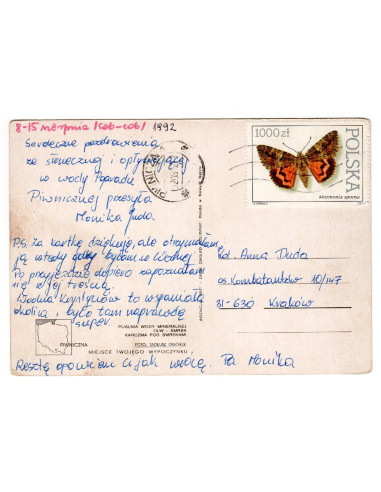 8-15 sierpnia /sob-sob/ 1992
Serdeczne pozdrowienia
ze słonecznej i opływającej
w wody Popradu
Piwnicznej przesyła
Monika
P.S za kartkę dziękuję, ale otrzymałam
ją wtedy gdy byłam w Wodnej
Po przyjeździe dopiero zapoznałam
się z jej treścią.
Wodna Krystynów to wspaniała
okolica i było tam naprawdę
super.
PIJALNIA WODY MINERALNEJ
DLW - SMREK
KARCZMA POD SMREKAMI
PIWNICZNA
FOTO: TADEUSZ OGÓREK
MIEJSCE TWOJEGO WYPOCZYNKU
Resztę opowiem Ci jak wrócę. Pa Monika
1000 zł
POLSKA
Mormonia sponsa
Kol. Anna Duda
os. Kombatantów 10/147
31-630 Kraków